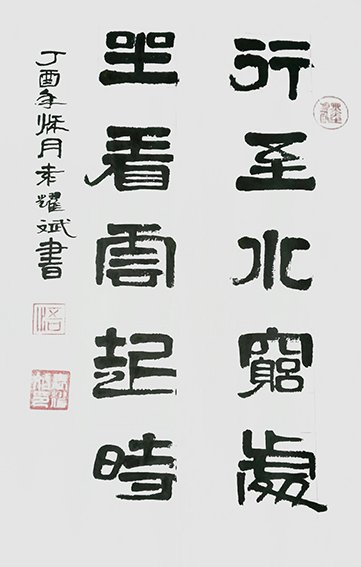 行至水窮處
坐看雲起時
丁酉年秌月袁耀斌書